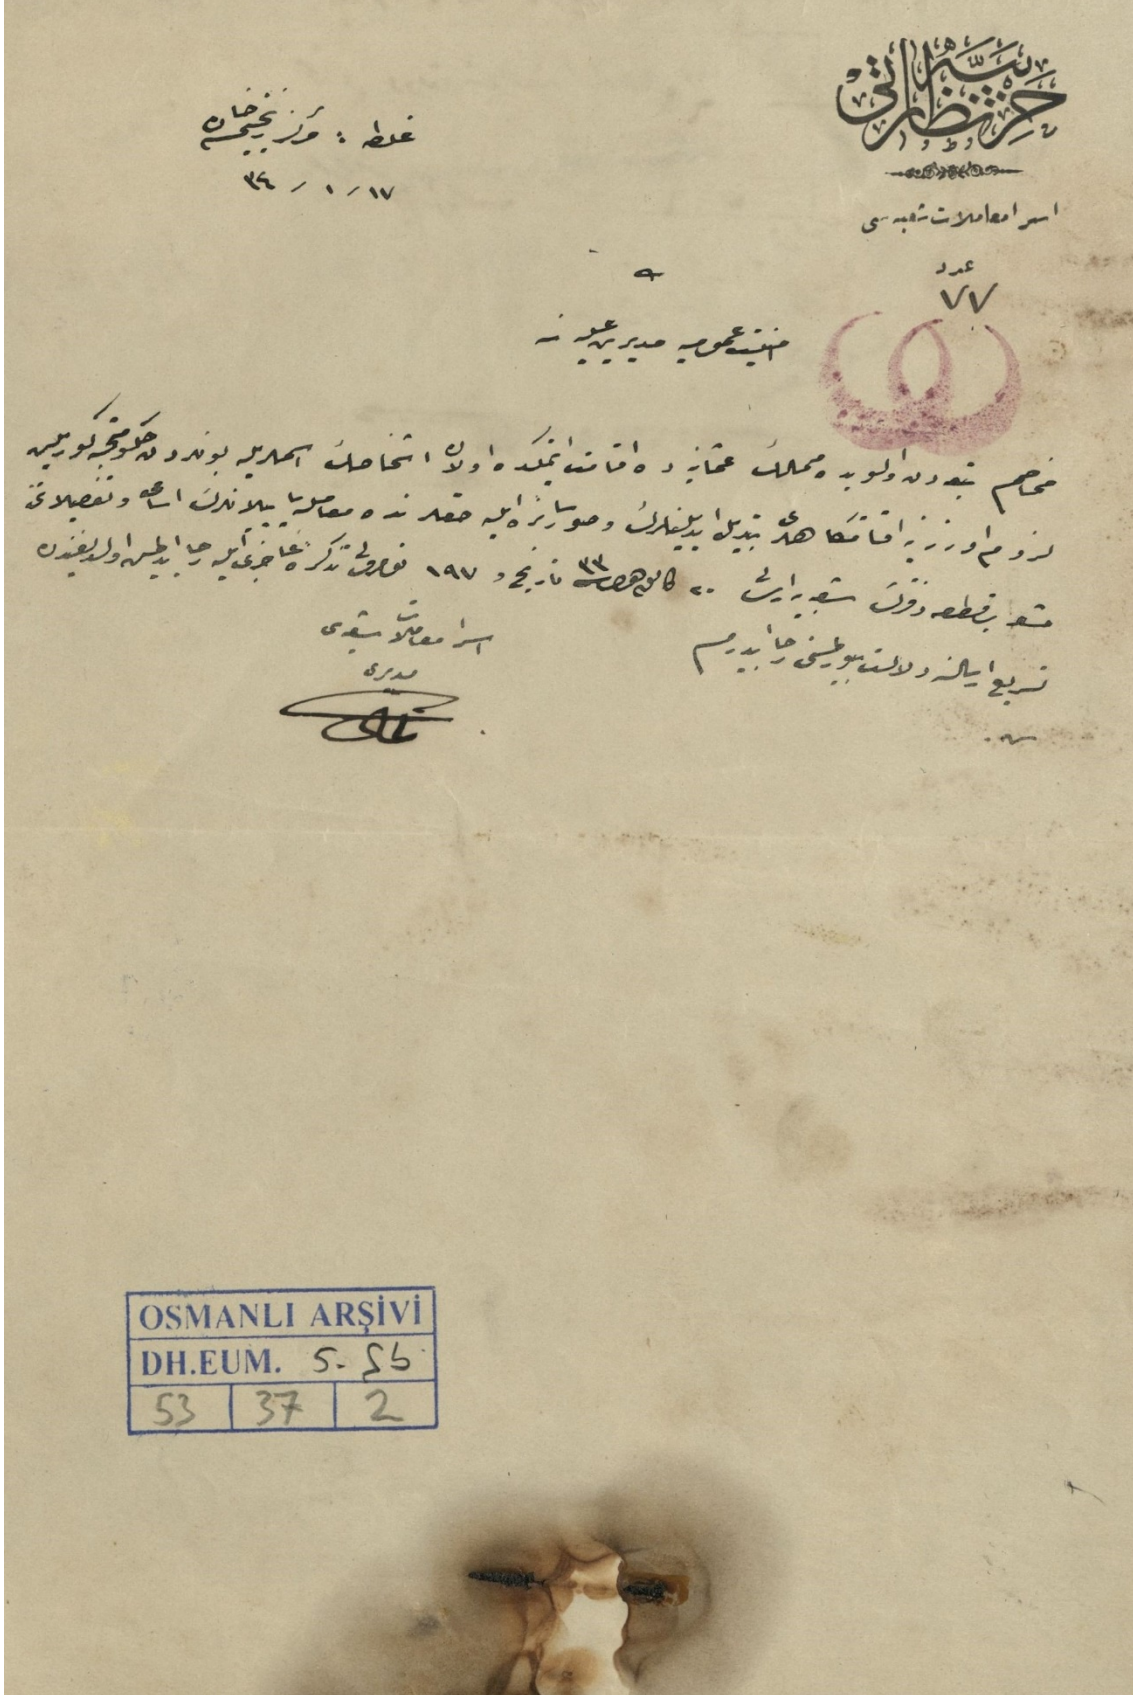 حربیه نظارتی
اسرا معاملات شعبه سی
عدد
٧٧
غلطه : مرکز ریختیم خان
١٧ / ١ / ٣٤
امنیت عمومیه مدیریت علیه سنه
مخاصم تبعه دن اولوب ده ممالك عثمانیه ده اقامت ایتمکده اولان اشخاصك اسملریله بونلردن حکومتجه کوریلن
لزوم اوزرینه اقامتکاهلری تبدیل ایدیلنلرك و صور سائره ایله حقلرنده معامله یاپیلانلرك اسامی و تفصیلاتی
مشعر بر قطعه دفترك شعبه یه ارسالی ٢٠ کانون اول ٣٣ تاریخ و ١٩٧ نومرولی تذکره عاجزی ایله رجا ایدلمش اولدیغندن
تسریع ارسالنه دلالت بیورلمسنی رجا ایدرم
اسرا معاملات شعبه سی
مدیری
OSMANLI ARŞİVİ
DH.EUM. 5. Şb
53 37 2